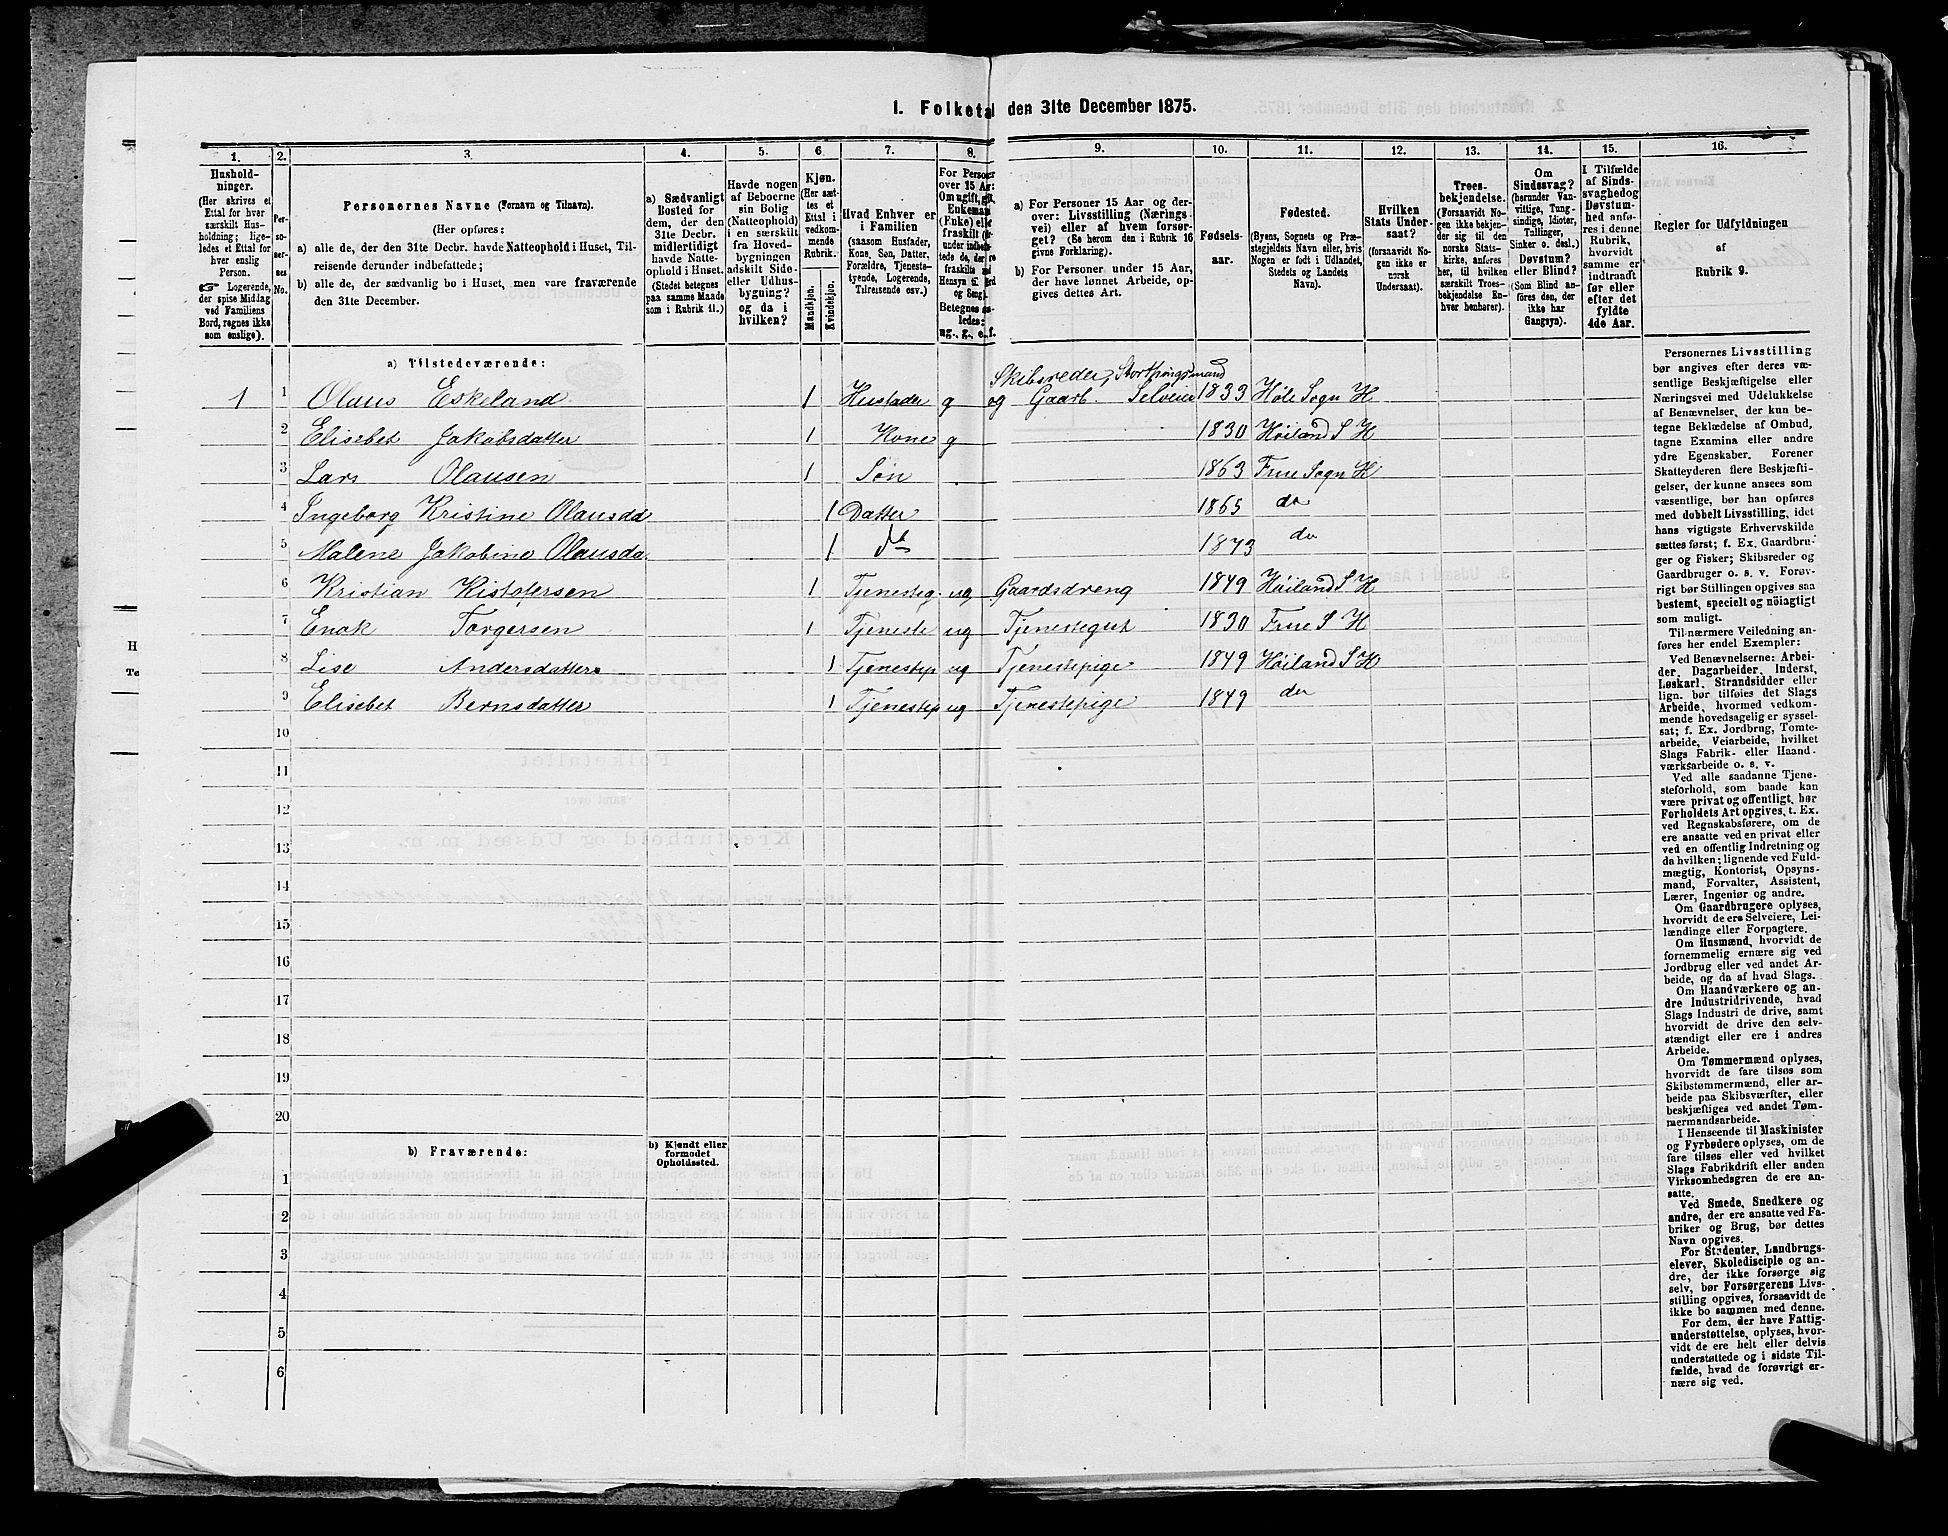 1. Folketal den 31te December 1875.
1. 2. 3. 4. 5. 6. 7. 8. 9. 10. 11. 12. 13. 14. 15. 16.
Hushold-
ninger.
(Her skrives et
Ettal for hver
særskilt Hus-
holdning; lige-
ledes et Ettal for
hver enslig
Person.
☞ Logerende,
der spise Middag
ved Familiens
Bord, regnes ikke
som enslige).
Per-
so-
ner-
nes
No.
Personernes Navne (Fornavn og Tilnavn).
(Her opføres:
a) alle de, der den 31te Decbr. havde Natteophold i Huset, Til-
reisende derunder indbefattede;
b) alle de, der sædvanlig bo i Huset, men vare fraværende
den 31te December.
a) Sædvanligt
Bosted for
dem, der den
31te Decbr.
midlertidigt
havde Natte-
ophold i Huset.
(Stedet betegnes
paa samme Maade
som i Rubrik 11.)
Havde nogen
af Beboerne
sin Bolig
(Natteophold)
i en særskilt
fra Hoved-
bygningen
adskilt Side-
eller Udhus-
bygning?
og da i
hvilken?
Kjøn.
(Her sæt-
tes et
Ettal i
vedkom-
mende
Rubrik.
Mandkjøn.
Kvindekjøn.
Hvad Enhver er
i Familien
(saasom Husfader,
Kone, Søn, Datter,
Forældre, Tjeneste-
tyende, Logerende,
Tilreisende osv.)
For Person
over 15 Aar:
Om ugift, gift,
Enkemand
(Enke) eller
fraskilt
Betegnes saa-
ledes:
ug., g., e., f.
a) For Personer 15 Aar og der-
over: Livsstilling (Nærings-
vei) eller af hvem forsør-
get? (Se herom den i Rubrik 16
givne Forklaring).
b) For Personer under 15 Aar,
der have lønnet Arbeide, op-
gives dettes Art.
Fødsels-
aar.
Fødested.
(Byens, Sognets og Præ-
stegjeldets Navn eller, hvis
Nogen er født i Udlandet,
Stedets og Landets
Navn).
Hvilken
Stats Under-
saat?
(forsaavidt No-
gen ikke er
norsk
Undersaat).
Troes-
bekjendelse.
(Forsaavidt No-
gen ikke bekjen-
der sig til den
norske Stats-
kirke, anføres
her, til hvilken
særskilt Troes-
bekjendelse En-
hver henhører).
Om
Sindssvag?
(herunder Van-
vittige, Tung-
sindige, Idioter,
Tullinger,
Sinker o. desl.)
Døvstum?
eller Blind?
(Som Blind an-
føres den, der
ikke har
Gangsyn).
I Tilfælde
af Sinds-
svaghed og
Døvstum-
hed anfø-
res i denne
Rubrik,
hvorvidt
samme er
indtraadt
før eller
efter det
fyldte
4de Aar.
Regler for Udfyldningen
af
Rubrik 9.
a) Tilstedeværende:
Skibsreder, Storthingsmand
1 1 Olaus Eskeland 1 Husfader g og Gaarb. Selveier 1833 Høle Sogn H
2 Elisebet Jakobsdatter 1 Kone g 1830 Høiland S H
3 Lars Olausen 1 Søn 1863 Frue Sogn H
4 Ingeborg Kristine Olausda 1 Datter 1865 do
5 Malene Jakobine Olausda. 1 do 1873 do
6 Kristian Kistofersen 1 Tjenesteg. ug Gaardsdreng 1849 Høiland S H
7 Enok Torgersen 1 Tjeneste ug Tjenestegut 1830 Frue S H
8 Lise Andersdatter 1 Tjenestep ug Tjenestepige 1849 Høiland S H
9 Elisebet Berndsdatter 1 Tjenestep ug Tjenestepige 1849 do
10
11
12
13
14
15
16
17
18
19
20
b) Fraværende:
b) Kjendt eller
formodet
Opholdssted.
1
2
3
4
5
6
Personernes Livsstilling
bør angives efter deres væ-
sentlige Beskjæftigelse eller
Næringsvei med Udelukkelse
af Benævnelser, der kun be-
tegne Beklædelse af Ombud,
tagne Examina eller andre
ydre Egenskaber. Forener
Skatteyderen flere Beskjæfti-
gelser, der kunne ansees som
væsentlige, bør han opføres
med dobbelt Livsstilling, idet
hans vigtigste Erhvervskilde
sættes først; f. Ex. Gaardbru-
ger og Fisker; Skibsreder og
Gaardbruger o. s. v. Forøv-
rigt bør Stillingen opgives saa
bestemt, specielt og nöiagtigt
som muligt.
Til nærmere Veiledning an-
føres her endel Exempler:
Ved Benævnelserne: Arbei-
der, Dagarbeider, Inderst,
Løskarl, Strandsidder eller
lign. bør tilføies det Slags
Arbeide, hvormed vedkom-
mende hovedsagelig er syssel-
sat; f. Ex. Jordbrug, Tomte-
arbeide, Veiarbeide, hvilket
Slags Fabrik- eller Haand-
værksarbeide o. s. v.
Ved alle saadanne Tjene-
steforhold, som baade kan
være privat og offentligt, bør
Forholdets Art opgives, t. Ex.
ved Regnskabsførere, om de
ere ansatte ved en privat eller
ved en offentlig Indretning og
da hvilken; lignende ved Fuld-
mægtig, Kontorist, Opsyns-
mand, Forvalter, Assistent,
Lærer, Ingeniør og andre.
Om Gaardbrugere oplyses,
hvorvidt de ere Selveiere, Lei-
lændinge eller Forpagtere.
Om Husmænd, hvorvidt de
fornemmelig ernære sig ved
Jordbrug eller ved andet Ar-
beide, og da af hvad Slags.
Om Haandværkere og an-
dre Industridrivende, hvad
Slags Industri de drive, samt
hvorvidt de drive den selv-
stændigt eller ere i andres
Arbeide.
Om Tømmermænd oplyses,
hvorvidt de fare tilsøs som
Skibstømmermænd, eller ar-
beide paa Skibsværfter, eller
beskjæftiges ved andet Tøm-
mermandsarbeide.
I Henseende til Maskinister
og Fyrbødere oplyses, om de
fare tilsøs eller ved hvilket
Slags Fabrikdrift eller anden
Virksomhedsgren de ere an-
satte.
Ved Smede, Snedkere og
andre, der ere ansatte ved Fa-
briker og Brug, bør dettes
Navn opgives.
For Studenter, Landbrugs-
elever, Skoledisciple og an-
dre, der ikke forsørge sig
selv, bør Forsørgerens Livs-
stilling opgives, forsaavidt de
ikke bo sammen med denne.
For dem, der have Fattig-
understøttelse, oplyses, hvor-
vidt de ere helt eller delvis
understøttede og i sidste Til-
fælde, hvad de forøvrigt er-
nære sig ved.